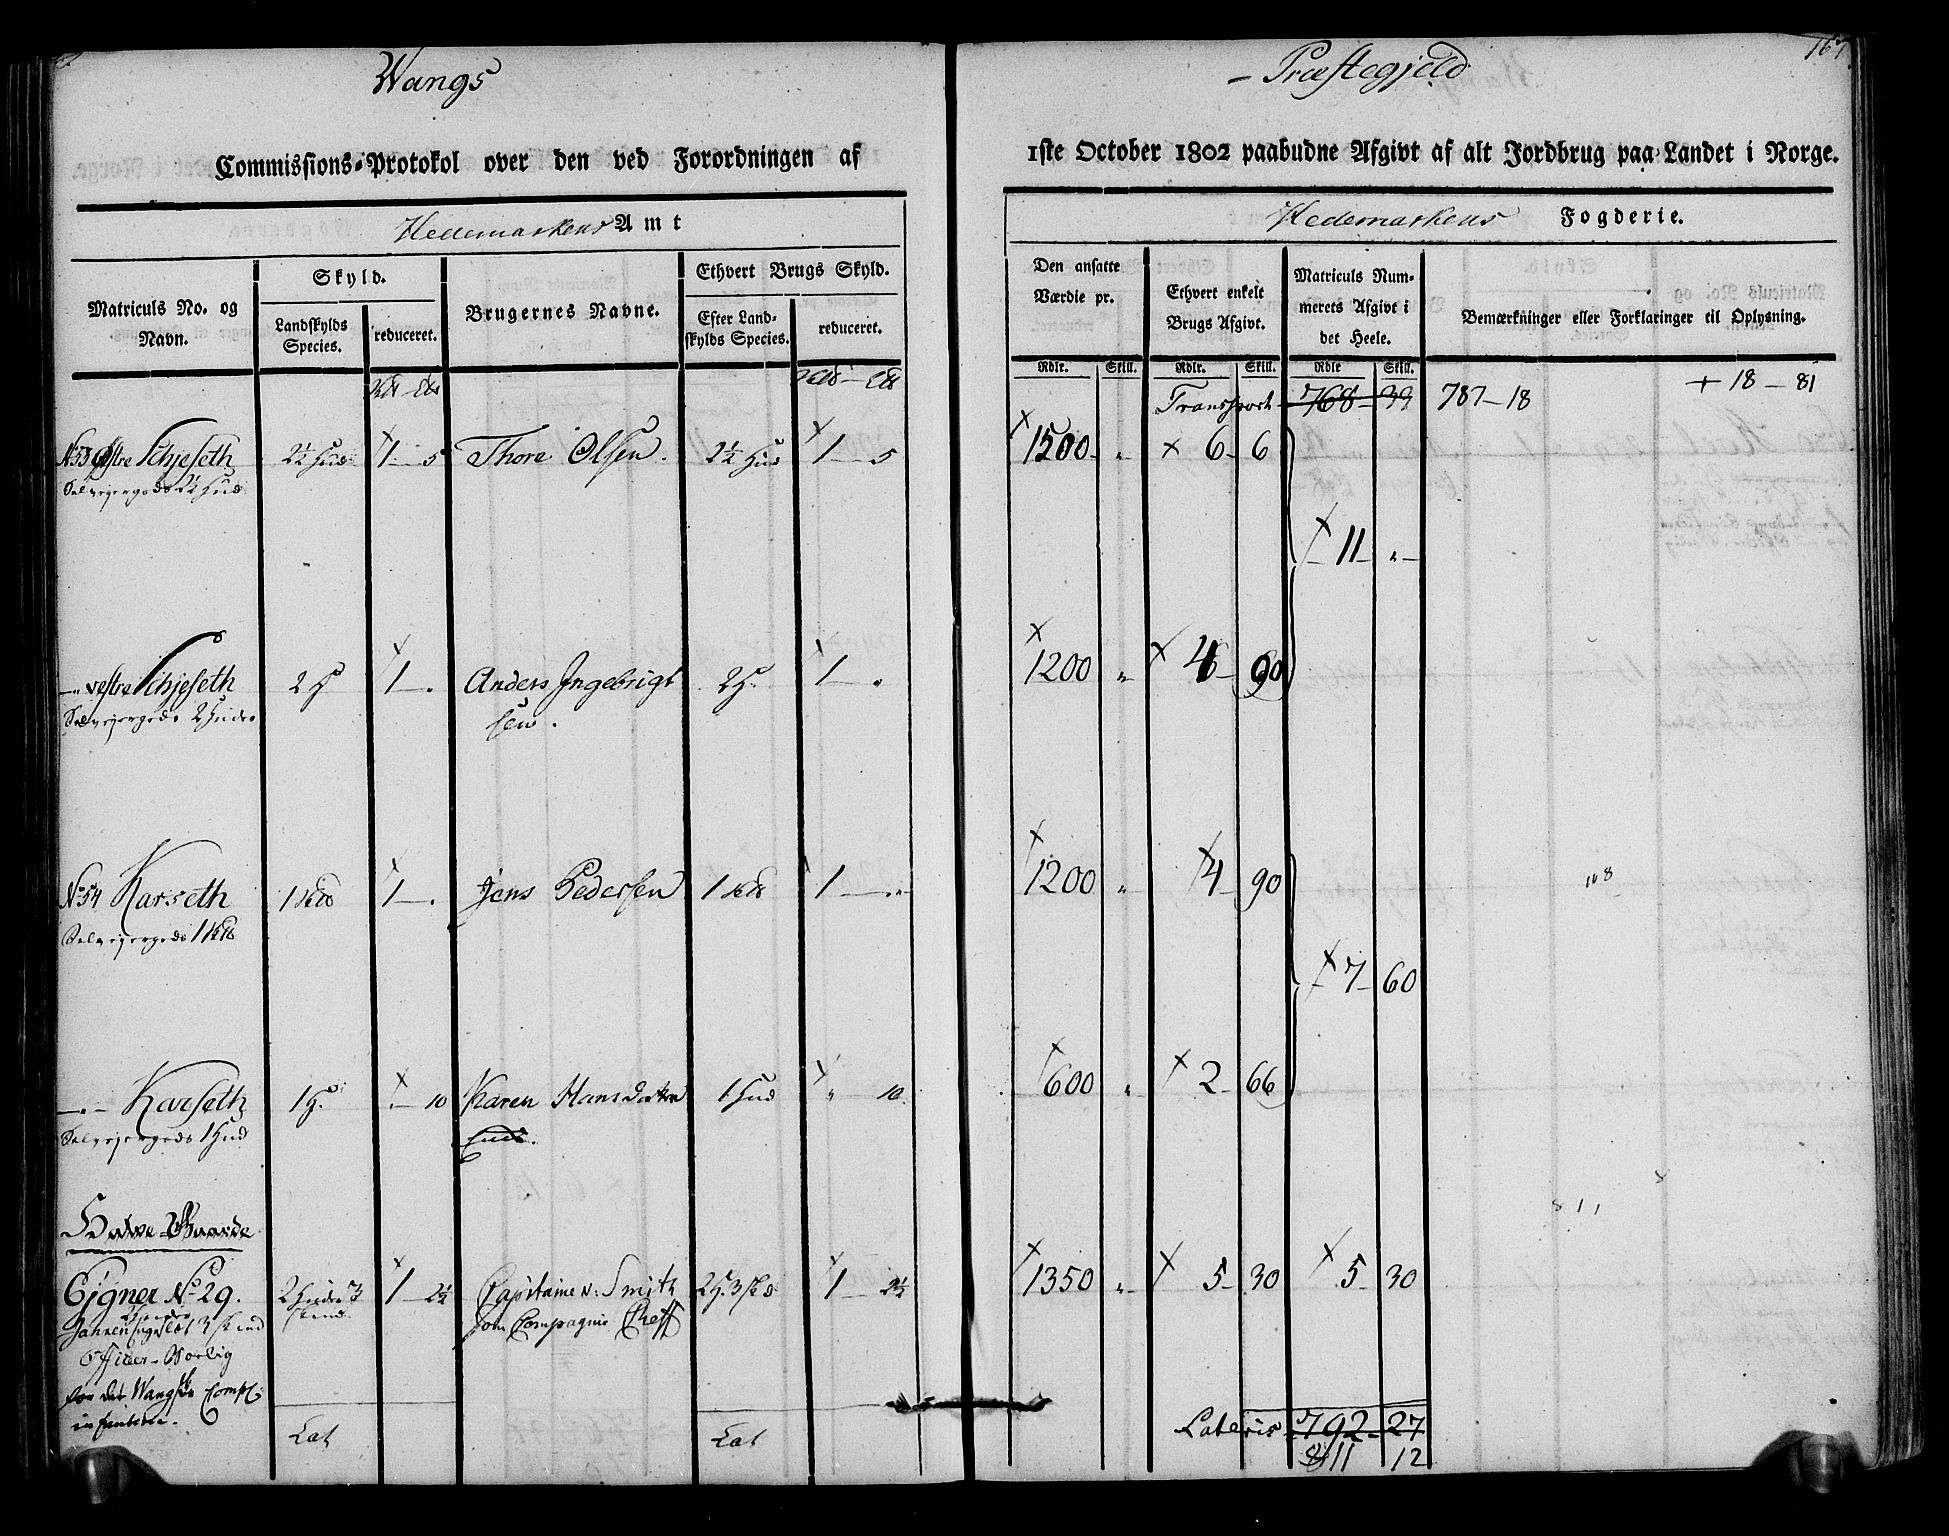 Wangs
- Præstegjeld
167
Commissions-Protokol over den ved Forordningen af
1ste October 1802 paabudne Afgivt af alt Jordbrug paa Landet i Norge.
Hedemarkens Amt
Hedemarkens Fogderie.
Matriculs No. og Navn.
Skyld.
Landskylds Species.
reduceret.
Brugernes Navne.
Ethvert Brugs Skyld.
Efter Landskylds Species.
reduceret.
Den ansatte Værdie pr.
Ethvert enkelt Brugs Afgivt.
Matriculs Nummerets Afgivt i det Heele.
Bemærkninger eller Forklaringer til Oplysning.
Rdlr. Skill. Rdlr. Skill. Rdlr Skill.
Transport 768 - 39 787 - 18 + 18 - 81
No 53 østre Schjeseth 2½ Hud 1 - 5 Thore Olsen. 2½ Hud 1 - 5 1500 - „ 6 - 6
Selvejergods 2½ Hud
11 „ -
-„- vestre Schjeseth 2 H 1 - . Anders Ingebrigt 2 H 1 - „ 1200 „ 4 - 90
Selvejergods 2 Huder
sen.
No 54 Karseth 1 1 - . Jens Pedersen 1 1 - „ 1200 „ 4 - 90 108
Selvejergods 1
7 - 60
-„- Karseth 1 H. „ - 10 Karen Hansdatter 1 Hud „ 10. 600 „ 2 - 66
Selvejergods 1 Hud
811
Gaarde
Ejgner No 29. 2 Huder 3 skind 1 - 2½ Capitaine v: Smith 2 H. 3 sk 1 - 2½ 1350 „ 5 - 30 5 - 30
som Compagnie Cheff
Officer-Bolig
for det Wangske Comp:
infanterie.
Lat
Lat
Lateris 792 - 27
811 12